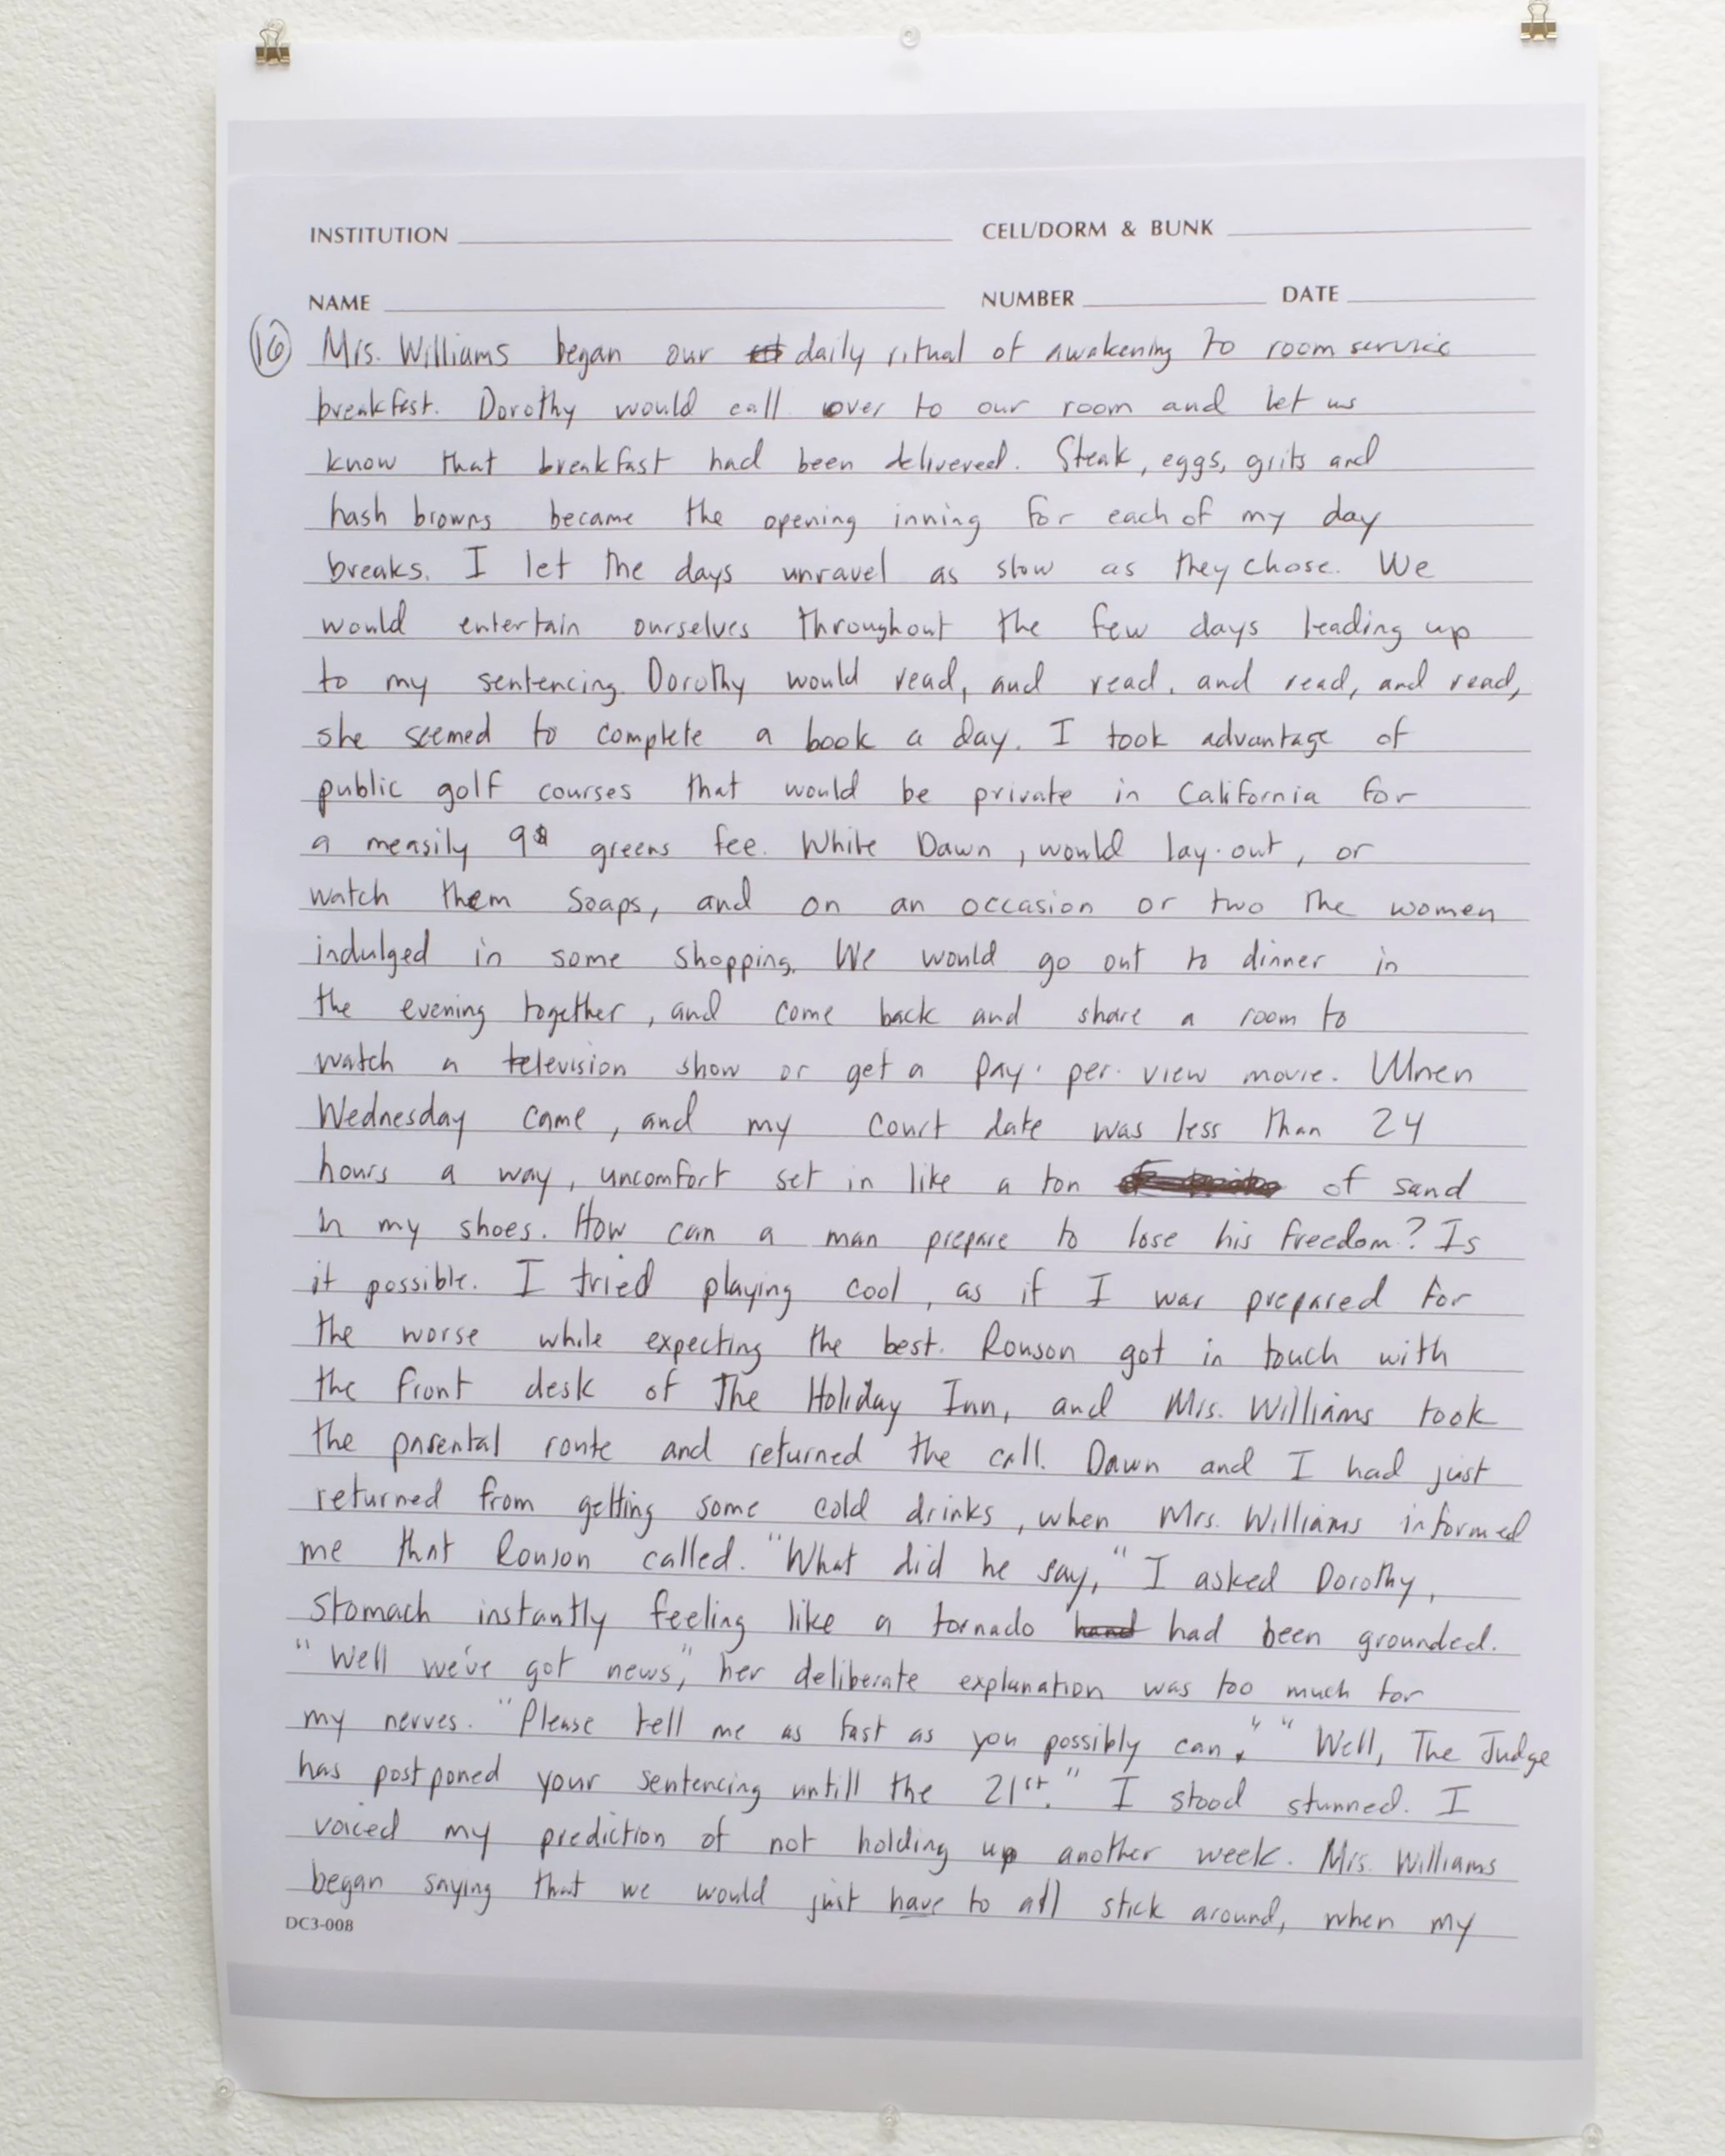 INSTITUTION CELL/DORM & BUNK
NAME NUMBER DATE
16 Mrs. Williams began our daily ritual of awakening to room service
breakfest. Dorothy would call over to our room and let us
know that breakfast had been delivered. Steak, eggs, grits and
hash browns became the opening inning for each of my day
breaks. I let the days unravel as slow as they chose. We
would entertain ourselves throughout the few days leading up
to my sentencing. Dorothy would read, and read, and read, and read,
she seemed to complete a book a day. I took advantage of
public golf courses that would be private in California for
a measily 9$ greens fee. White Dawn, would lay-out, or
watch them soaps, and on an occasion or two the women
indulged in some shopping. We would go out to dinner in
the evening together, and come back and share a room to
watch a television show or get a pay-per-view movie. When
Wednesday came, and my court date was less than 24
hours a way, uncomfort set in like a ton of sand
in my shoes. How can a man prepare to lose his freedom? Is
it possible. I tried playing cool, as if I was prepared for
the worse while expecting the best. Ronson got in touch with
the front desk of The Holiday Inn, and Mrs. Williams took
the parental route and returned the call. Dawn and I had just
returned from getting some cold drinks, when Mrs. Williams informed
me that Ronson called. "What did he say," I asked Dorothy,
stomach instantly feeling like a tornado hand had been grounded.
"Well we've got news", her deliberate explanation was too much for
my nerves. "Please tell me as fast as you possibly can." "Well, The Judge
has postponed your sentencing untill the 21st." I stood stunned. I
voiced my prediction of not holding up another week. Mrs. Williams
began saying that we would just have to all stick around, when my
DC3-008